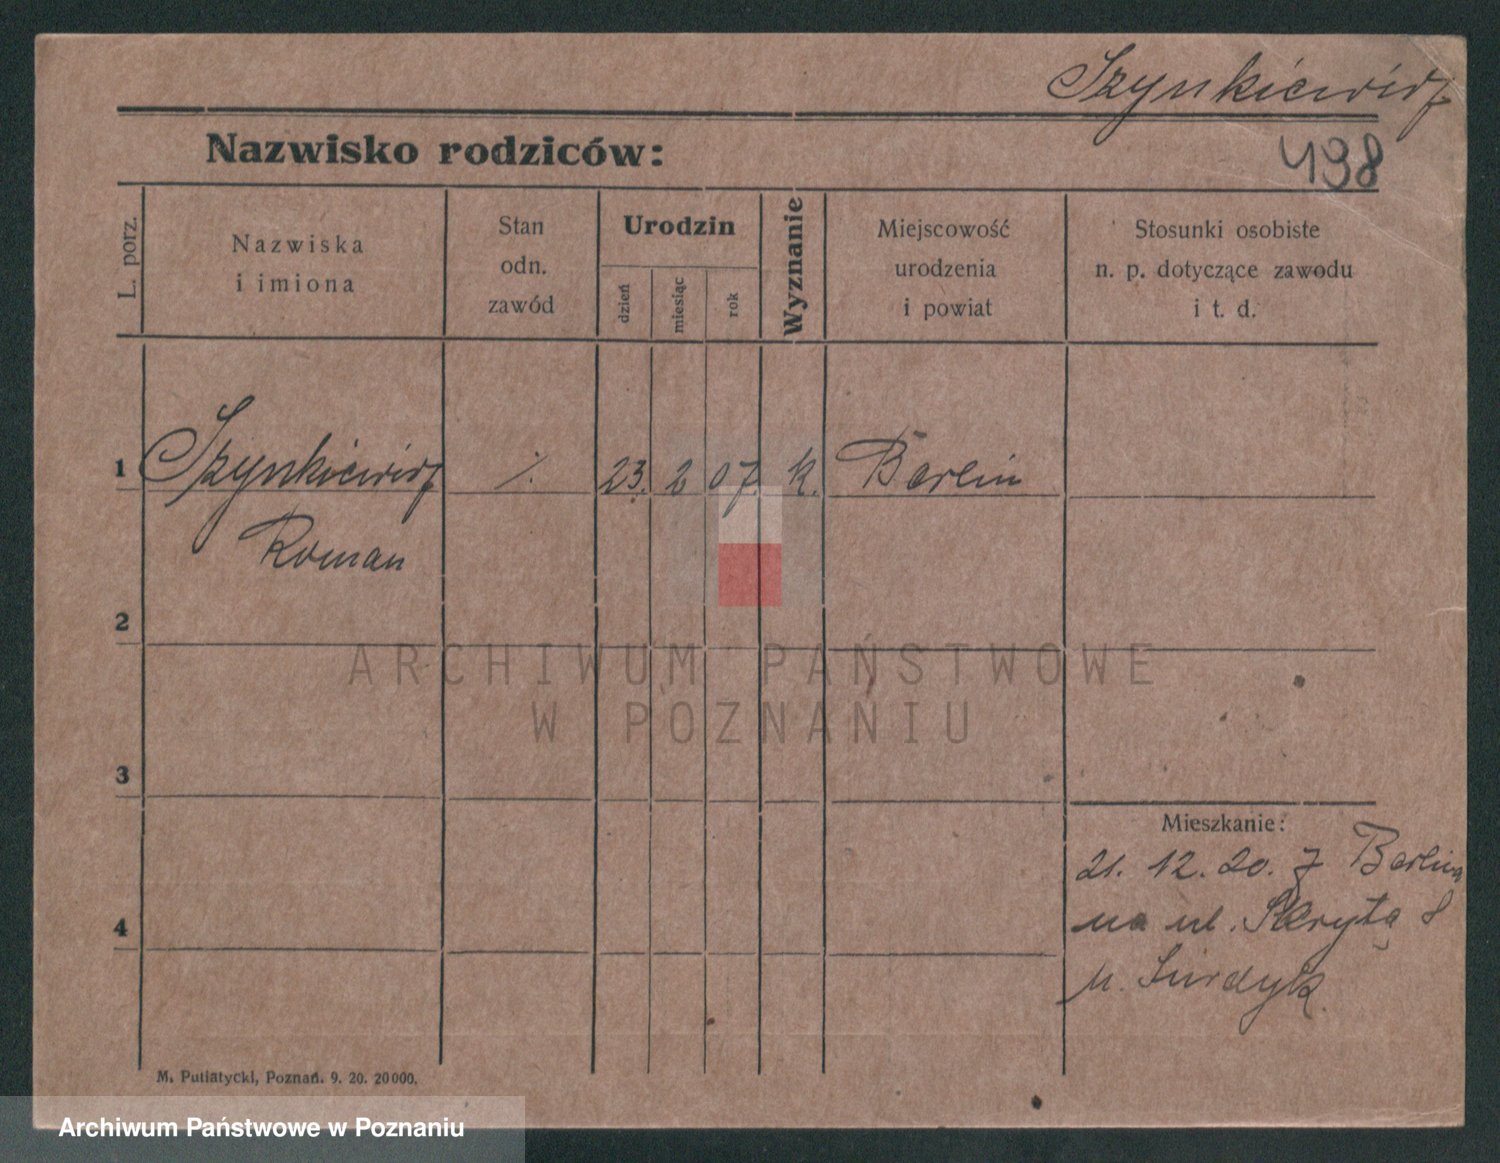 Szynkiewicz
Nazwisko rodziców:
498
L. porz.
Nazwiska
i imiona
Stan
odn.
zawód
Urodzin
dzień
miesiąc
rok
Wyznanie
Miejscowość
urodzenia
i powiat
Stosunki osobiste
n. p. dotyczące zawodu
i t. d.
1 Szynkiewicz ./. 23. 2 07. k. Berlin
Roman
2
ARCHIWUM PAŃSTWOWE
W POZNANIU
3
Mieszkanie:
21. 12. 20. z Berlina
na ul. Skrytą 8
4
u. Surdyk.
M. Putiatycki, Poznań. 9. 20. 20000.
Archiwum Państwowe w Poznaniu